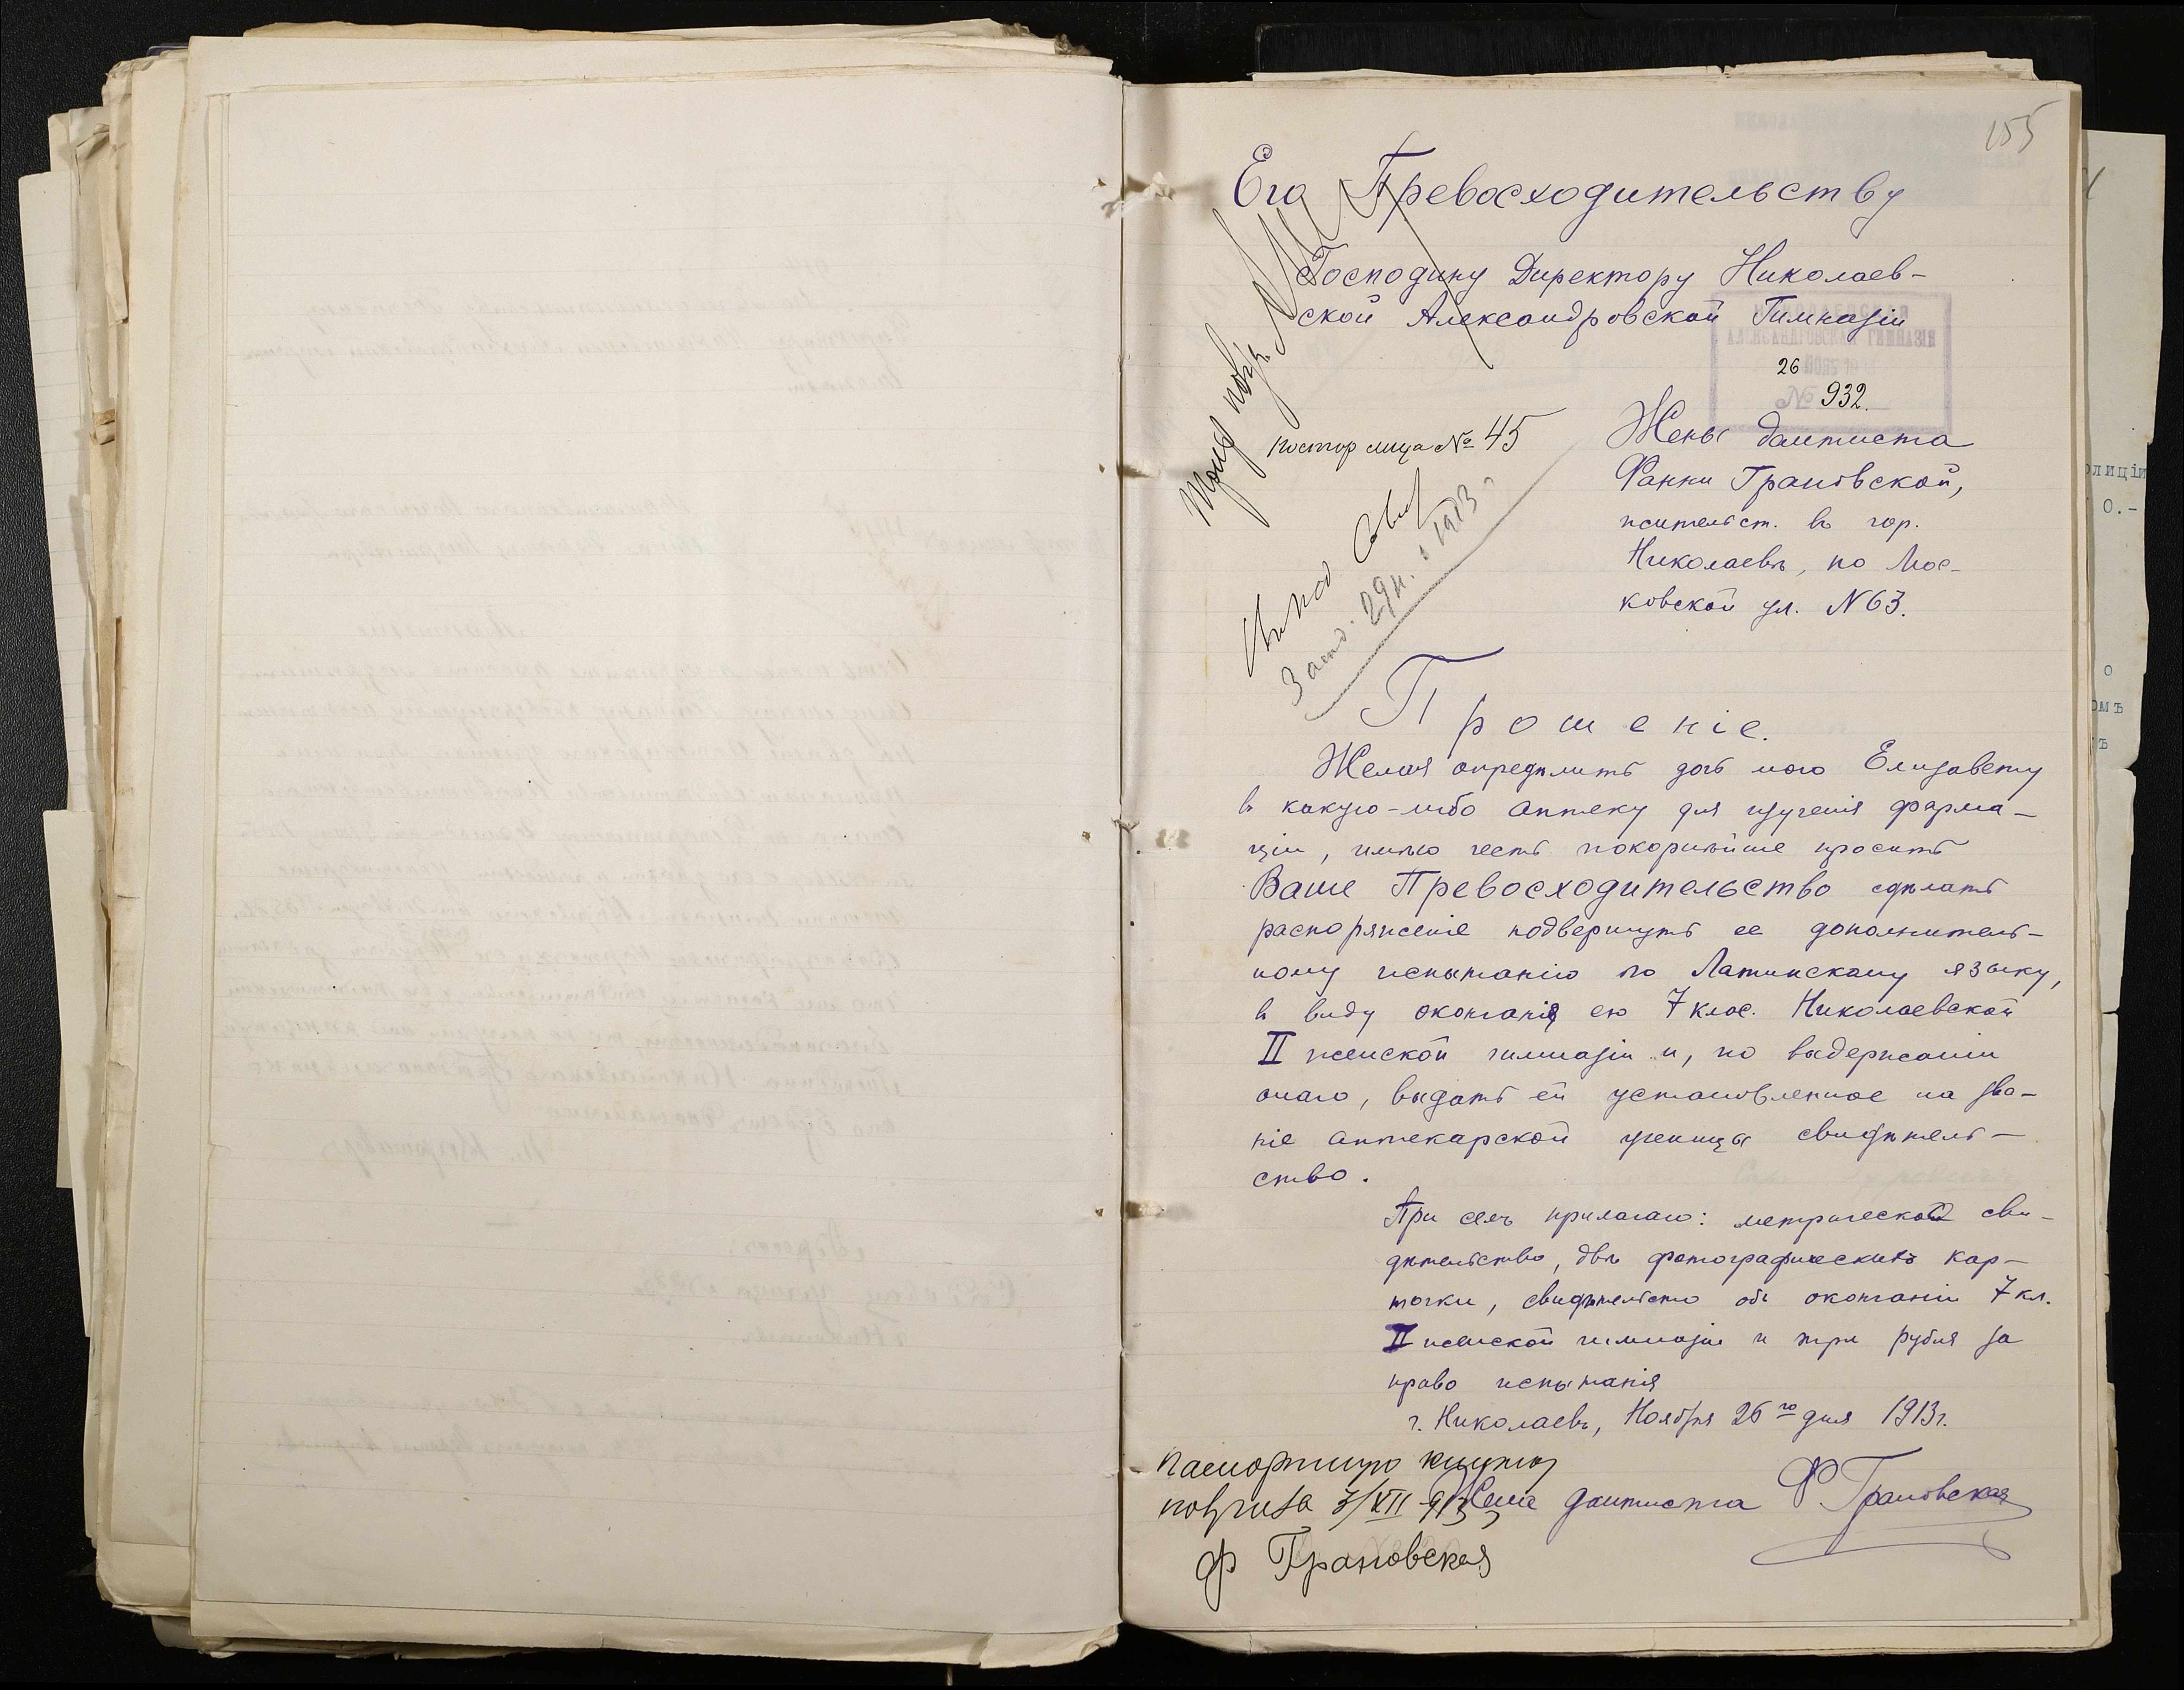 155
Его Превосходительству
Господину Директору Николаев-
ской Александровской Гимназіи
АЛЕКСАНДРОВСКАЯ ГИМНАЗІЯ
26
№ 932.
Постор лица № 45
Жены дантиста
Фанни Грановской,
жительст. въ гор.
Николаевѣ, по Мос-
ковской ул. N 63.
29 н. 1913 г
Прошеніе.
Желая опредѣлить дочь мою Елизавету
в какую-либо аптеку для изученія фарма-
ціи, имѣю честь покорнѣйше просить
Ваше Превосходительство сдѣлать
распоряженіе подвергнуть ее дополнитель-
ному испытанію по Латинскому языку,
в виду окончанія ею 7 клас. Николаевской
II женской гимназіи и, по выдержаніи
онаго, выдать ей установленное на зва-
ніе аптекарской ученицы свидѣтель-
ство.
При семъ прилагаю: метрическое сви-
дѣтельство, двѣ фотографическихъ кар-
точки, свидѣтельство объ окончаніи 7 кл.
II женской гимназіи и три рубля за
право испытанія
г. Николаевъ, Ноября 26 го дня 1913 г.
Жена дантиста Ф. Грановская
паспортную книжку
получила 3/XII 913
Ф Грановская